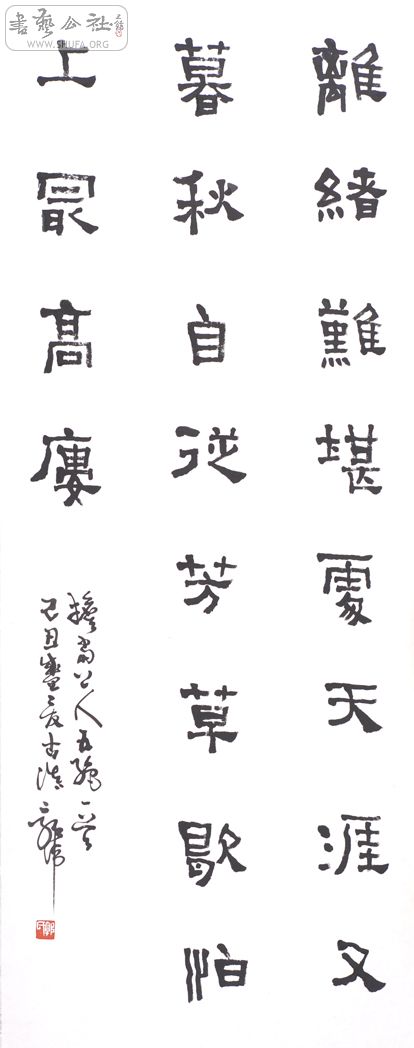 離緒難堪處天涯又
暮秋自從芳草歇怕
上最高廔
擔當上人五絕一首
己丑盛夏古滇
書藝公社
WWW.SHUFA.ORG